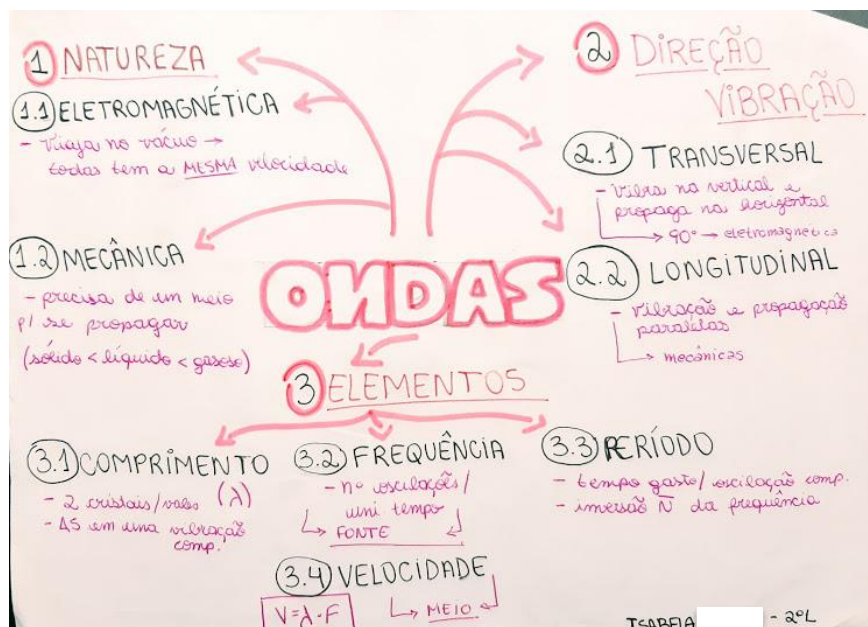 ONDAS
1 NATUREZA
1.1 ELETROMAGNÉTICA
- viaja no vácuo →
todas tem a MESMA velocidade
1.2 MECÂNICA
- precisa de um meio
p/ se propagar
(sólido < líquido < gasoso)
2 DIREÇÃO
VIBRAÇÃO
2.1 TRANSVERSAL
- vibra na vertical e
propaga na horizontal
→ 90° → eletromagnética
2.2 LONGITUDINAL
- vibração e propagação
paralelas
→ mecânicas
3 ELEMENTOS
3.1 COMPRIMENTO
- 2 cristais/vales (λ)
- ΔS em uma vibração
comp.
3.2 FREQUÊNCIA
- nº oscilações/
uni tempo
→ FONTE
3.3 PERÍODO
- tempo gasto/ oscilação comp.
- da frequência
3.4 VELOCIDADE
V=λ.F
→ MEIO
ISABELA - 2ºL